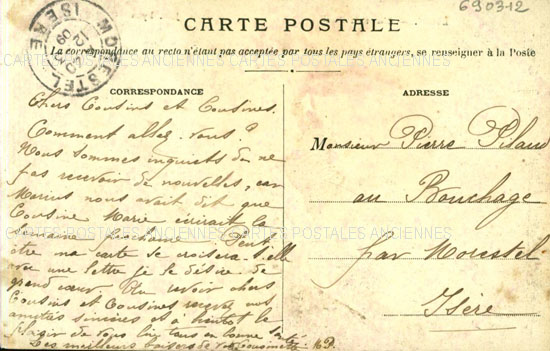 690312
CARTE POSTALE
La correspondance au recto n'étant pas acceptée par tous les pays étrangers, se renseigner à la Poste
MORESTEL
ISERE
CORRESPONDANCE
ADRESSE
Chers Cousins et Cousines.
Comment allez-vous ?
Nous sommes inquiets de ne
pas recevoir de nouvelles, car
Marius nous avait dit que
Cousine Marie écrirait la
semaine prochaine. Peut
être ma carte se croisera-t-elle
une lettre je le désire de
grand cœur. Au revoir chers
Cousins et Cousines recevez nos
amitiés sincères et à bientôt le
plaisir de vous lire tous en bonne santé
Les meilleurs baisers de votre cousinette MP.
Monsieur Pierre
au Bouchage
par Morestel
Isère
CARTES POSTALES ANCIENNES